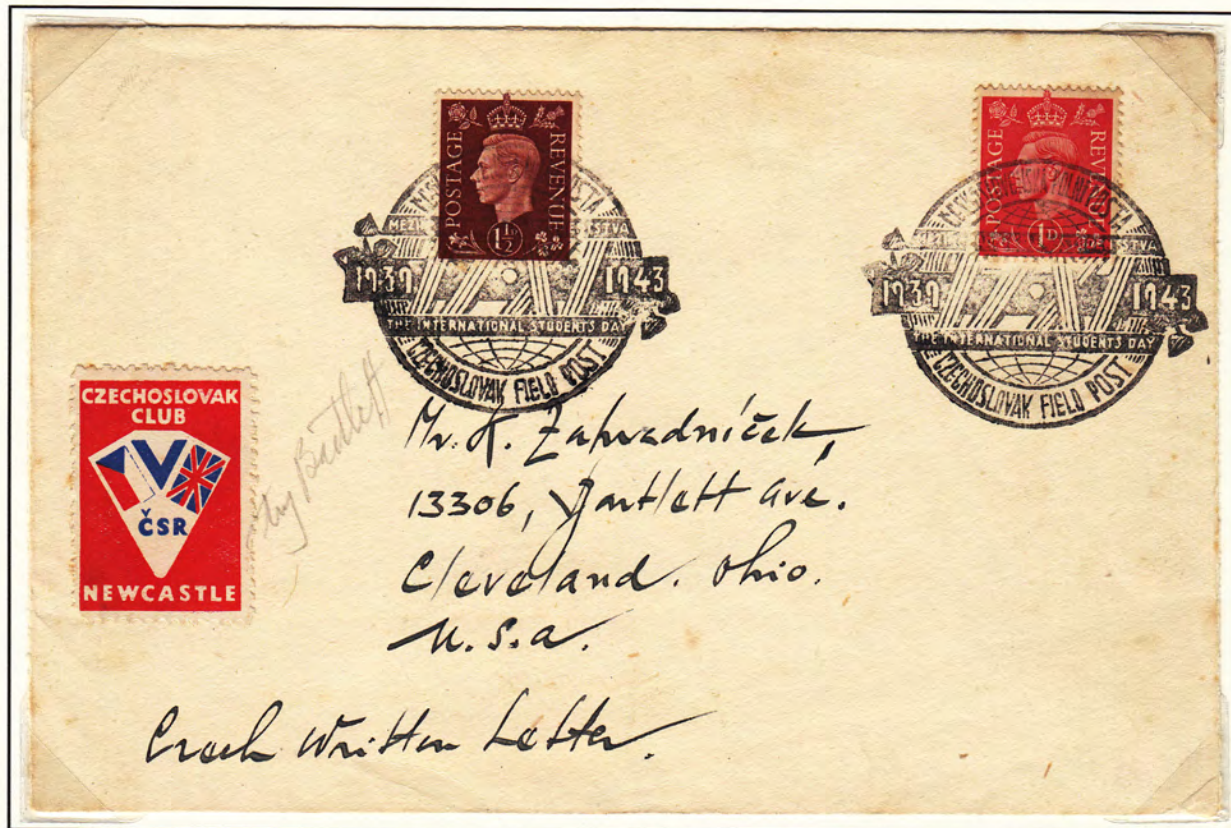 POSTAGE REVENUE
1½
POSTAGE REVENUE
1D
1939 1943
THE INTERNATIONAL STUDENTS DAY
CZECHOSLOVAK FIELD POST
1939 1943
THE INTERNATIONAL STUDENTS DAY
CZECHOSLOVAK FIELD POST
CZECHOSLOVAK
CLUB
V
ČSR
NEWCASTLE
Mr. K. Zahradníček,
13306, Bartlett Ave.
Cleveland. Ohio.
U.S.A.
Czech Written Letter.